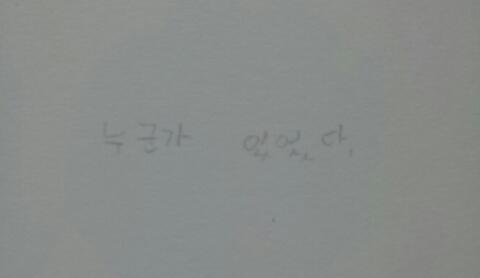 누군가 있었다.